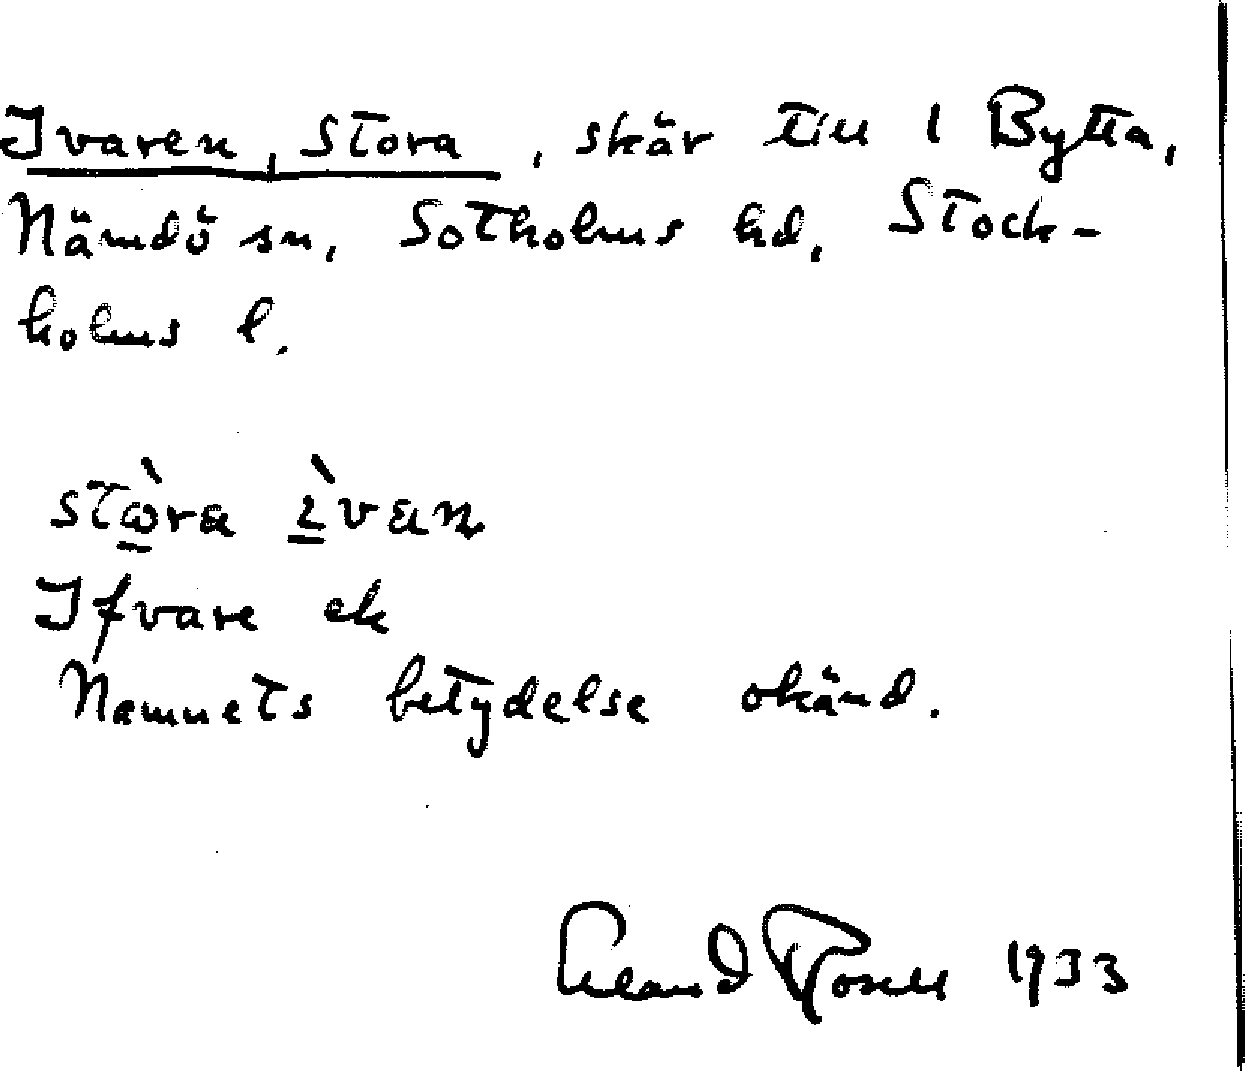 Ivaren, Stora, skär till 1 Bytta,
Nämdö sn, Sotholms hd, Stock-
holms l.
stὼra ὶvan
Ifvare ek
Namnets betydelse okänd.
Erland Rosell 1933